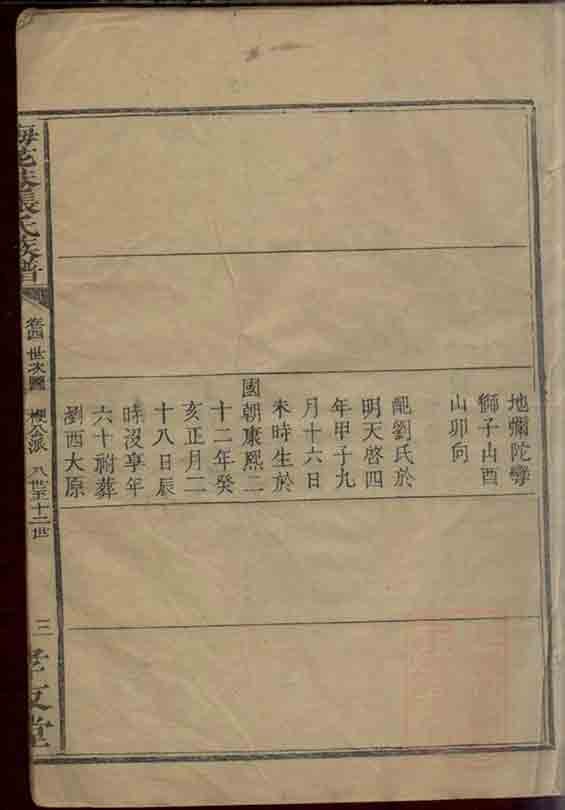 地彌陀彎
獅子山酉
山卯向
配劉氏於
明天啓四
年甲子九
月十六日
未時生於
國朝康熙二
十二年癸
亥正月二
十八日辰
時沒享年
六十祔葬
瀏西大原
張氏族譜
卷四 世次圖 公派 八世至十二世
三
孝友堂